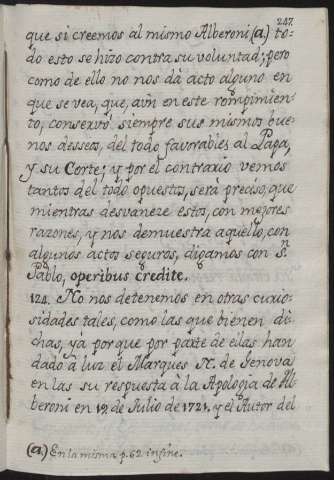 247.
que si creemos al mismo Alberoni (a.) to-
do esto se hizo contra su voluntad; pero
como de ello no nos dà acto alguno en
que se vea, que, aùn en este rompimien-
to, conservò siempre sus mismos bue-
nos desseos, del todo favorables al Papa,
y su Corte; y por el contrario vemos
tantos del todo opuestos, serà preciso, que
mientras desvaneze estos, con mejores
razones, y nos demuestra aquello, con
algunos actos seguros, digamos con S.ⁿ
Pablo, operibus credite.
124. No nos detenemos en otras curio-
sidades tales, como las que bienen di-
chas, yà porque por parte de ellas han
dado à luz el Marques N. de Genova
en las su respuesta à la Apologia de Al-
beroni en 12 de Julio de 1721. y el Autor del
(a.) En la misma p. 62 in fine.